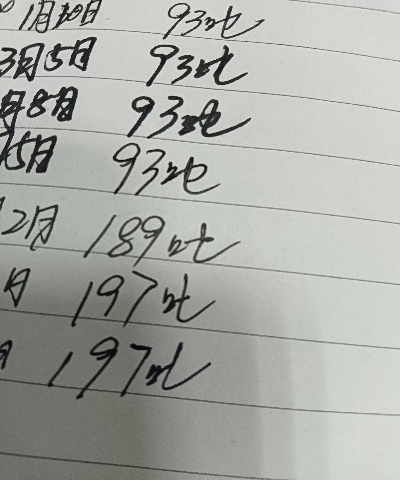 1月30日 93吨
3月5月 93吨
月8月 93吨
15月 93吨
12月 189吨
月 197吨
197吨